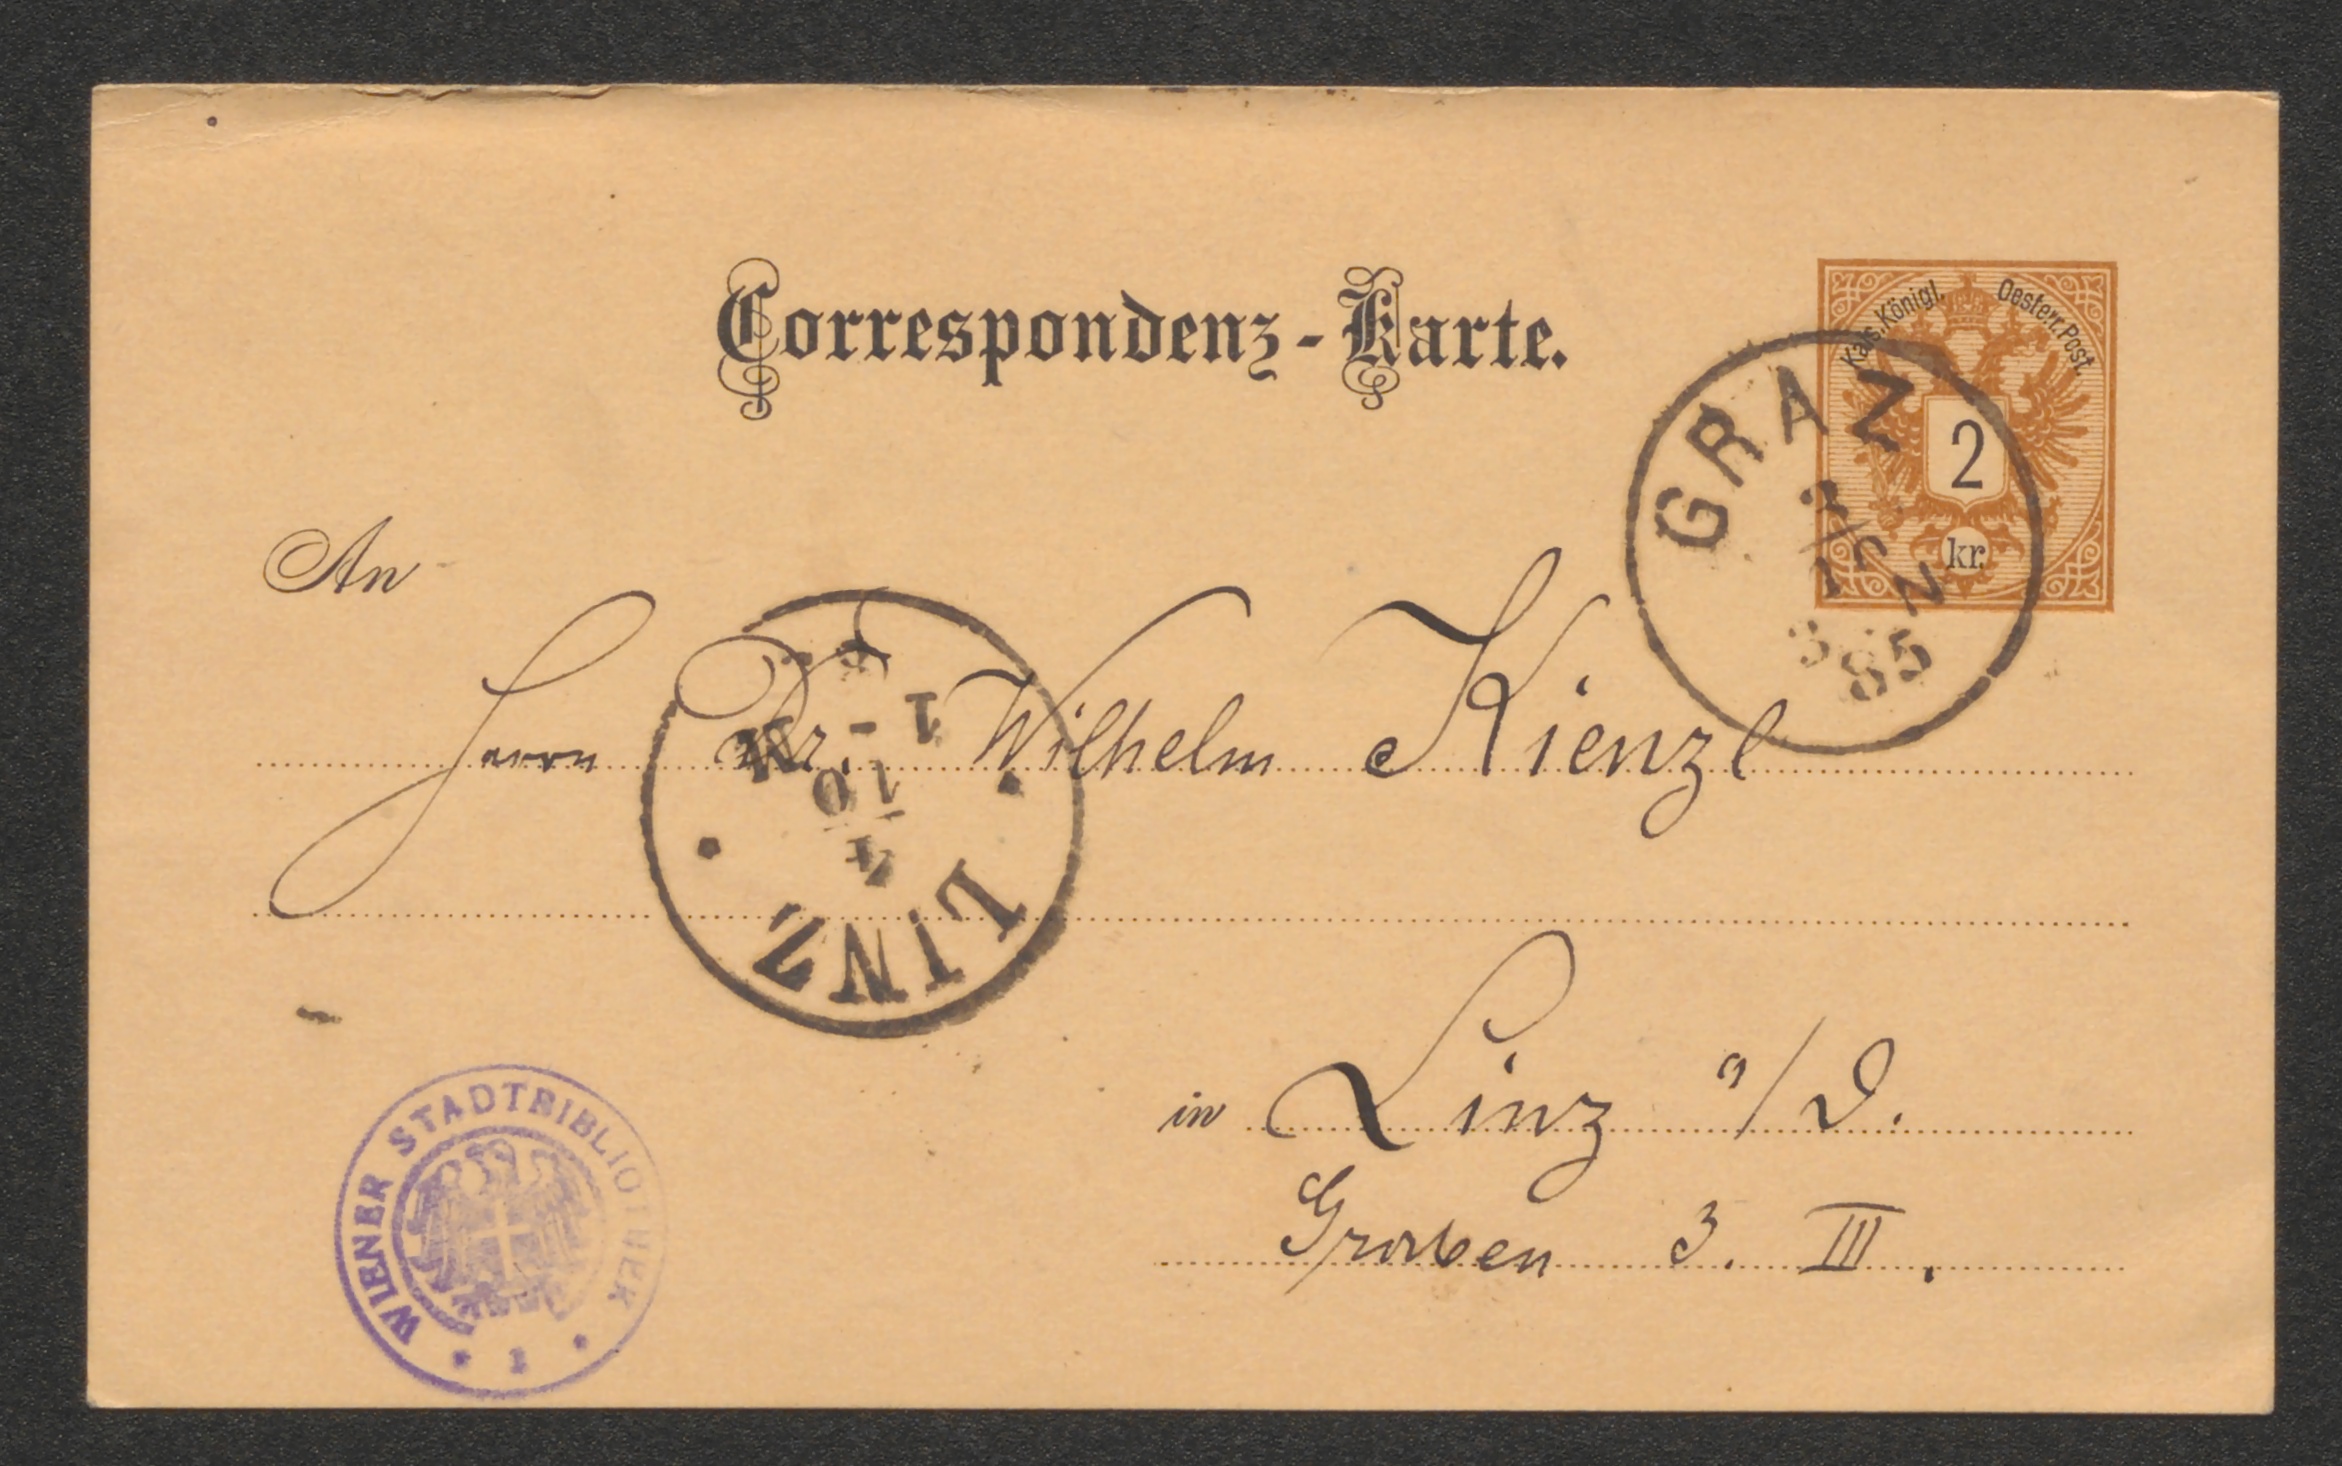 Correspondenz-Karte.
Kais. Königl. Oesterr. Post.
2
kr.
GRAZ
85
An
Herrn Dr. Wilhelm Kienzl
LINZ
in Linz a/D.
Graben 3. III.
WIENER STADTBIBLIOTHEK